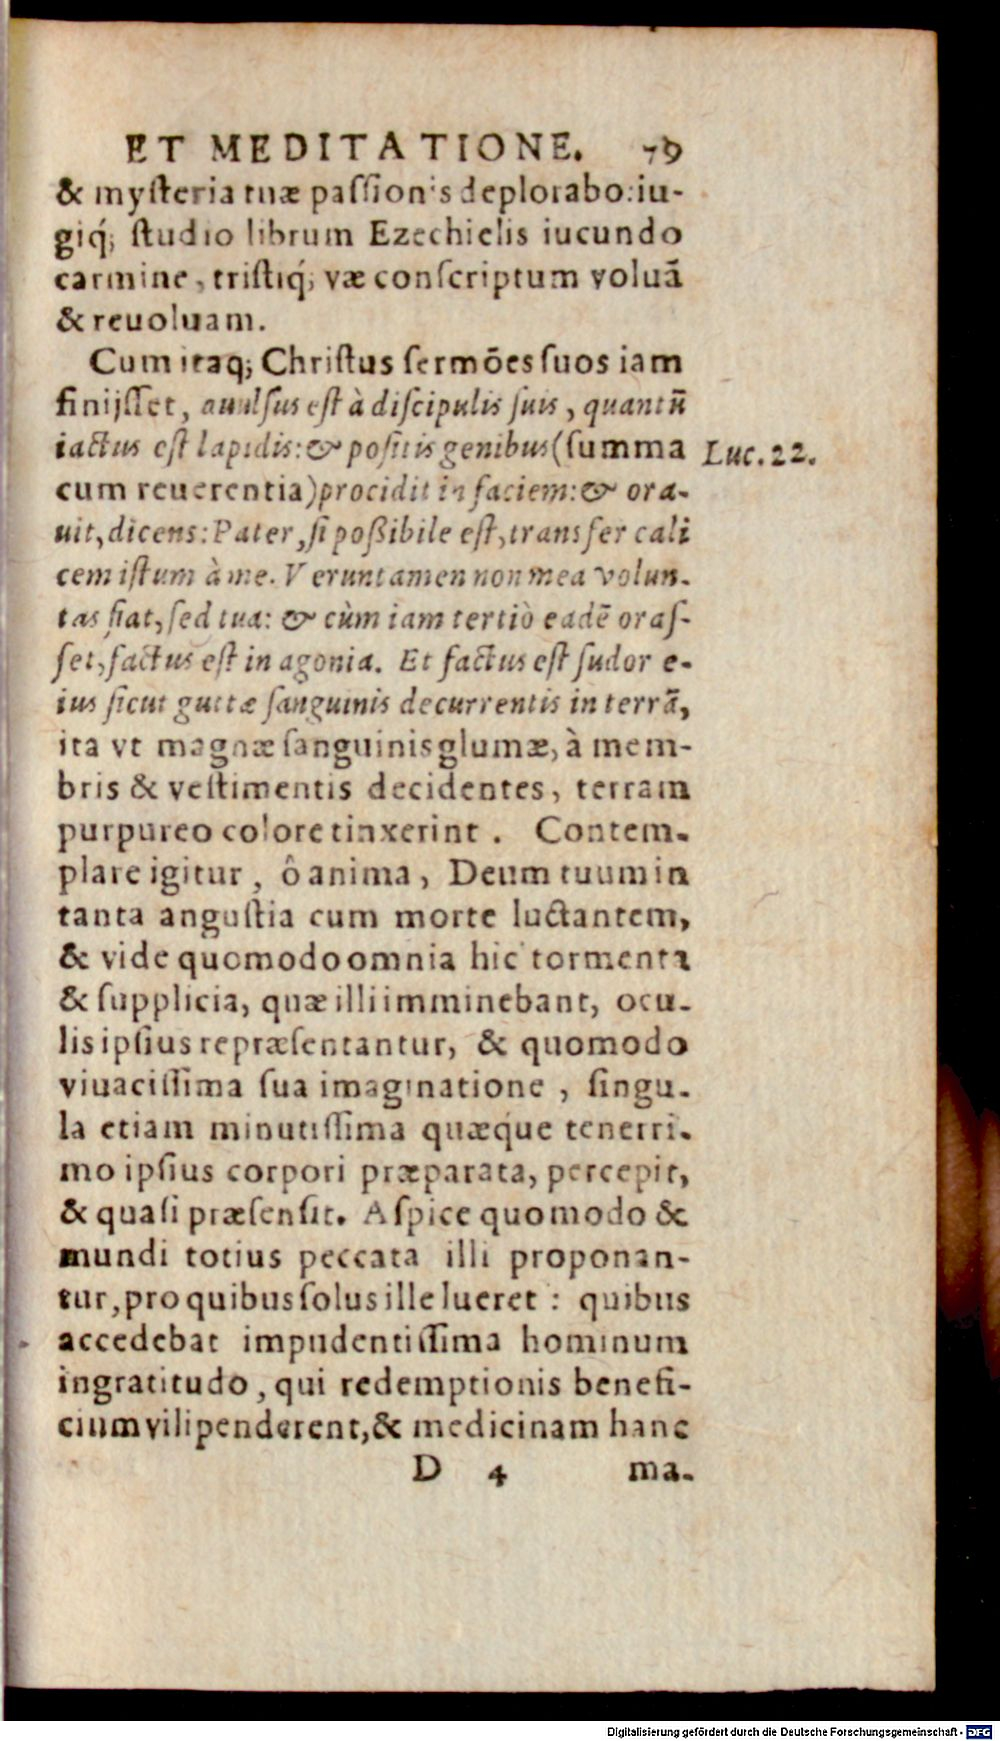 ET MEDITATIONE. 79
& myſteria tuæ paſſionis deplorabo: iu-
giq́; ſtudio librum Ezechielis iucundo
carmine, triſtiq́; væ conſcriptum voluā
& reuoluam.
Cum itaq; Chriſtus ſermōes ſuos iam
finijſſet, auulſus eſt à diſcipulis ſuis, quantū
iactus eſt lapidis: & poſitis genibus (ſumma
Luc. 22.
cum reuerentia) procidit in faciem: & ora-
uit, dicens: Pater, ſi poßibile eſt, transfer cali
cem iſtum à me. Veruntamen non mea volun-
tas fiat, ſed tua: & cùm iam tertiò eadē oraſ-
ſet, factus eſt in agonia. Et factus eſt ſudor e-
ius ſicut guttæ ſanguinis decurrentis in terrā,
ita vt magnæ ſanguinis glumæ, à mem-
bris & veſtimentis decidentes, terram
purpureo colore tinxerint. Contem-
plare igitur, ô anima, Deum tuum in
tanta anguſtia cum morte luctantem,
& vide quomodo omnia hic tormenta
& ſupplicia, quæ illi imminebant, ocu-
lis ipſius repræſentantur, & quomodo
viuaciſſima ſua imaginatione, ſingu-
la etiam minutiſſima quæque tenerri-
mo ipſius corpori præparata, percepit,
& quaſi præſenſit. Aſpice quomodo &
mundi totius peccata illi proponan-
tur, pro quibus ſolus ille lueret: quibus
accedebat impudentiſſima hominum
ingratitudo, qui redemptionis benefi-
cium vilipenderent, & medicinam hanc
D 4 ma-
Digitalisierung gefördert durch die Deutsche Forschungsgemeinschaft - DFG